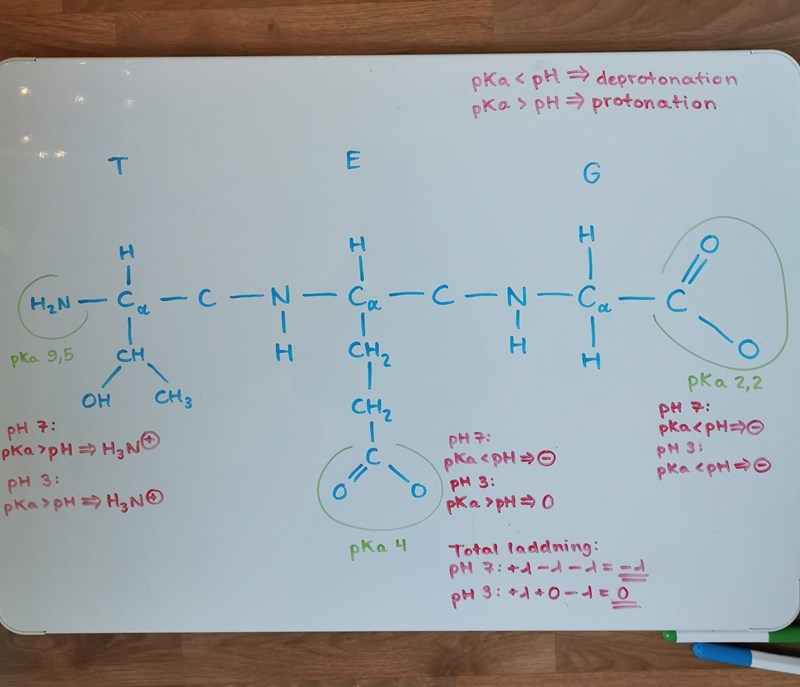 pKa < pH ⇒ deprotonation
pKa > pH ⇒ protonation
T E G
H H H O
H₂N — Cα — C — N — Cα — C — N — Cα — C
H H H O
CH CH₂
OH CH₃
CH₂
C
O O
pKa 9,5
pH 7:
pKa > pH ⇒ H₃N⊕
pH 3:
pKa > pH ⇒ H₃N⊕
pKa 4
pH 7:
pKa < pH ⇒ ⊖
pH 3:
pKa > pH ⇒ 0
pKa 2,2
pH 7:
pKa < pH ⇒ ⊖
pH 3:
pKa < pH ⇒ ⊖
Total laddning:
pH 7: +1 -1 -1 = -1
pH 3: +1 + 0 - 1 = 0